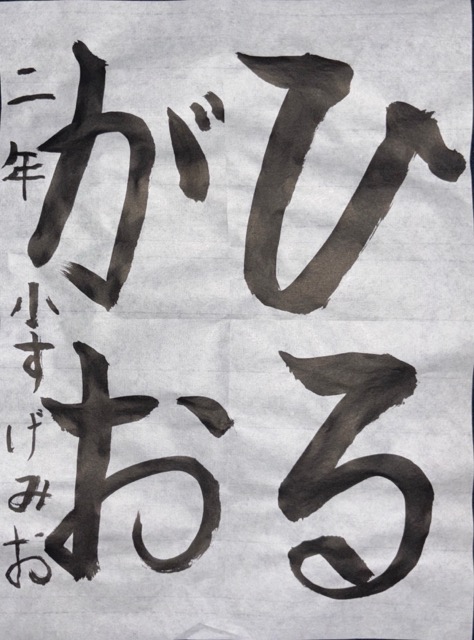 ひる
がお
二年 小すげみお